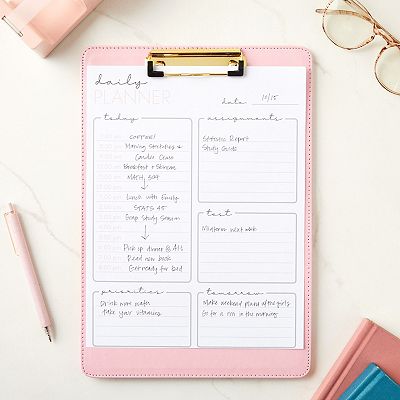 daily
PLANNER
date 10/15
today
COFFEE!
Morning Stretches &
Cardio Class
Breakfast + Skincare
MATH 304
Lunch with Emily
STATS 45
Group Study Session
Pick up dinner @ 6
Read new book
Get ready for bed
assignments
Statistics Report
Study Guide
test
Midterms next week
priorities
Drink more water
Take your vitamins
tomorrow
Make weekend plans w/ the girls
Go for a run in the morning